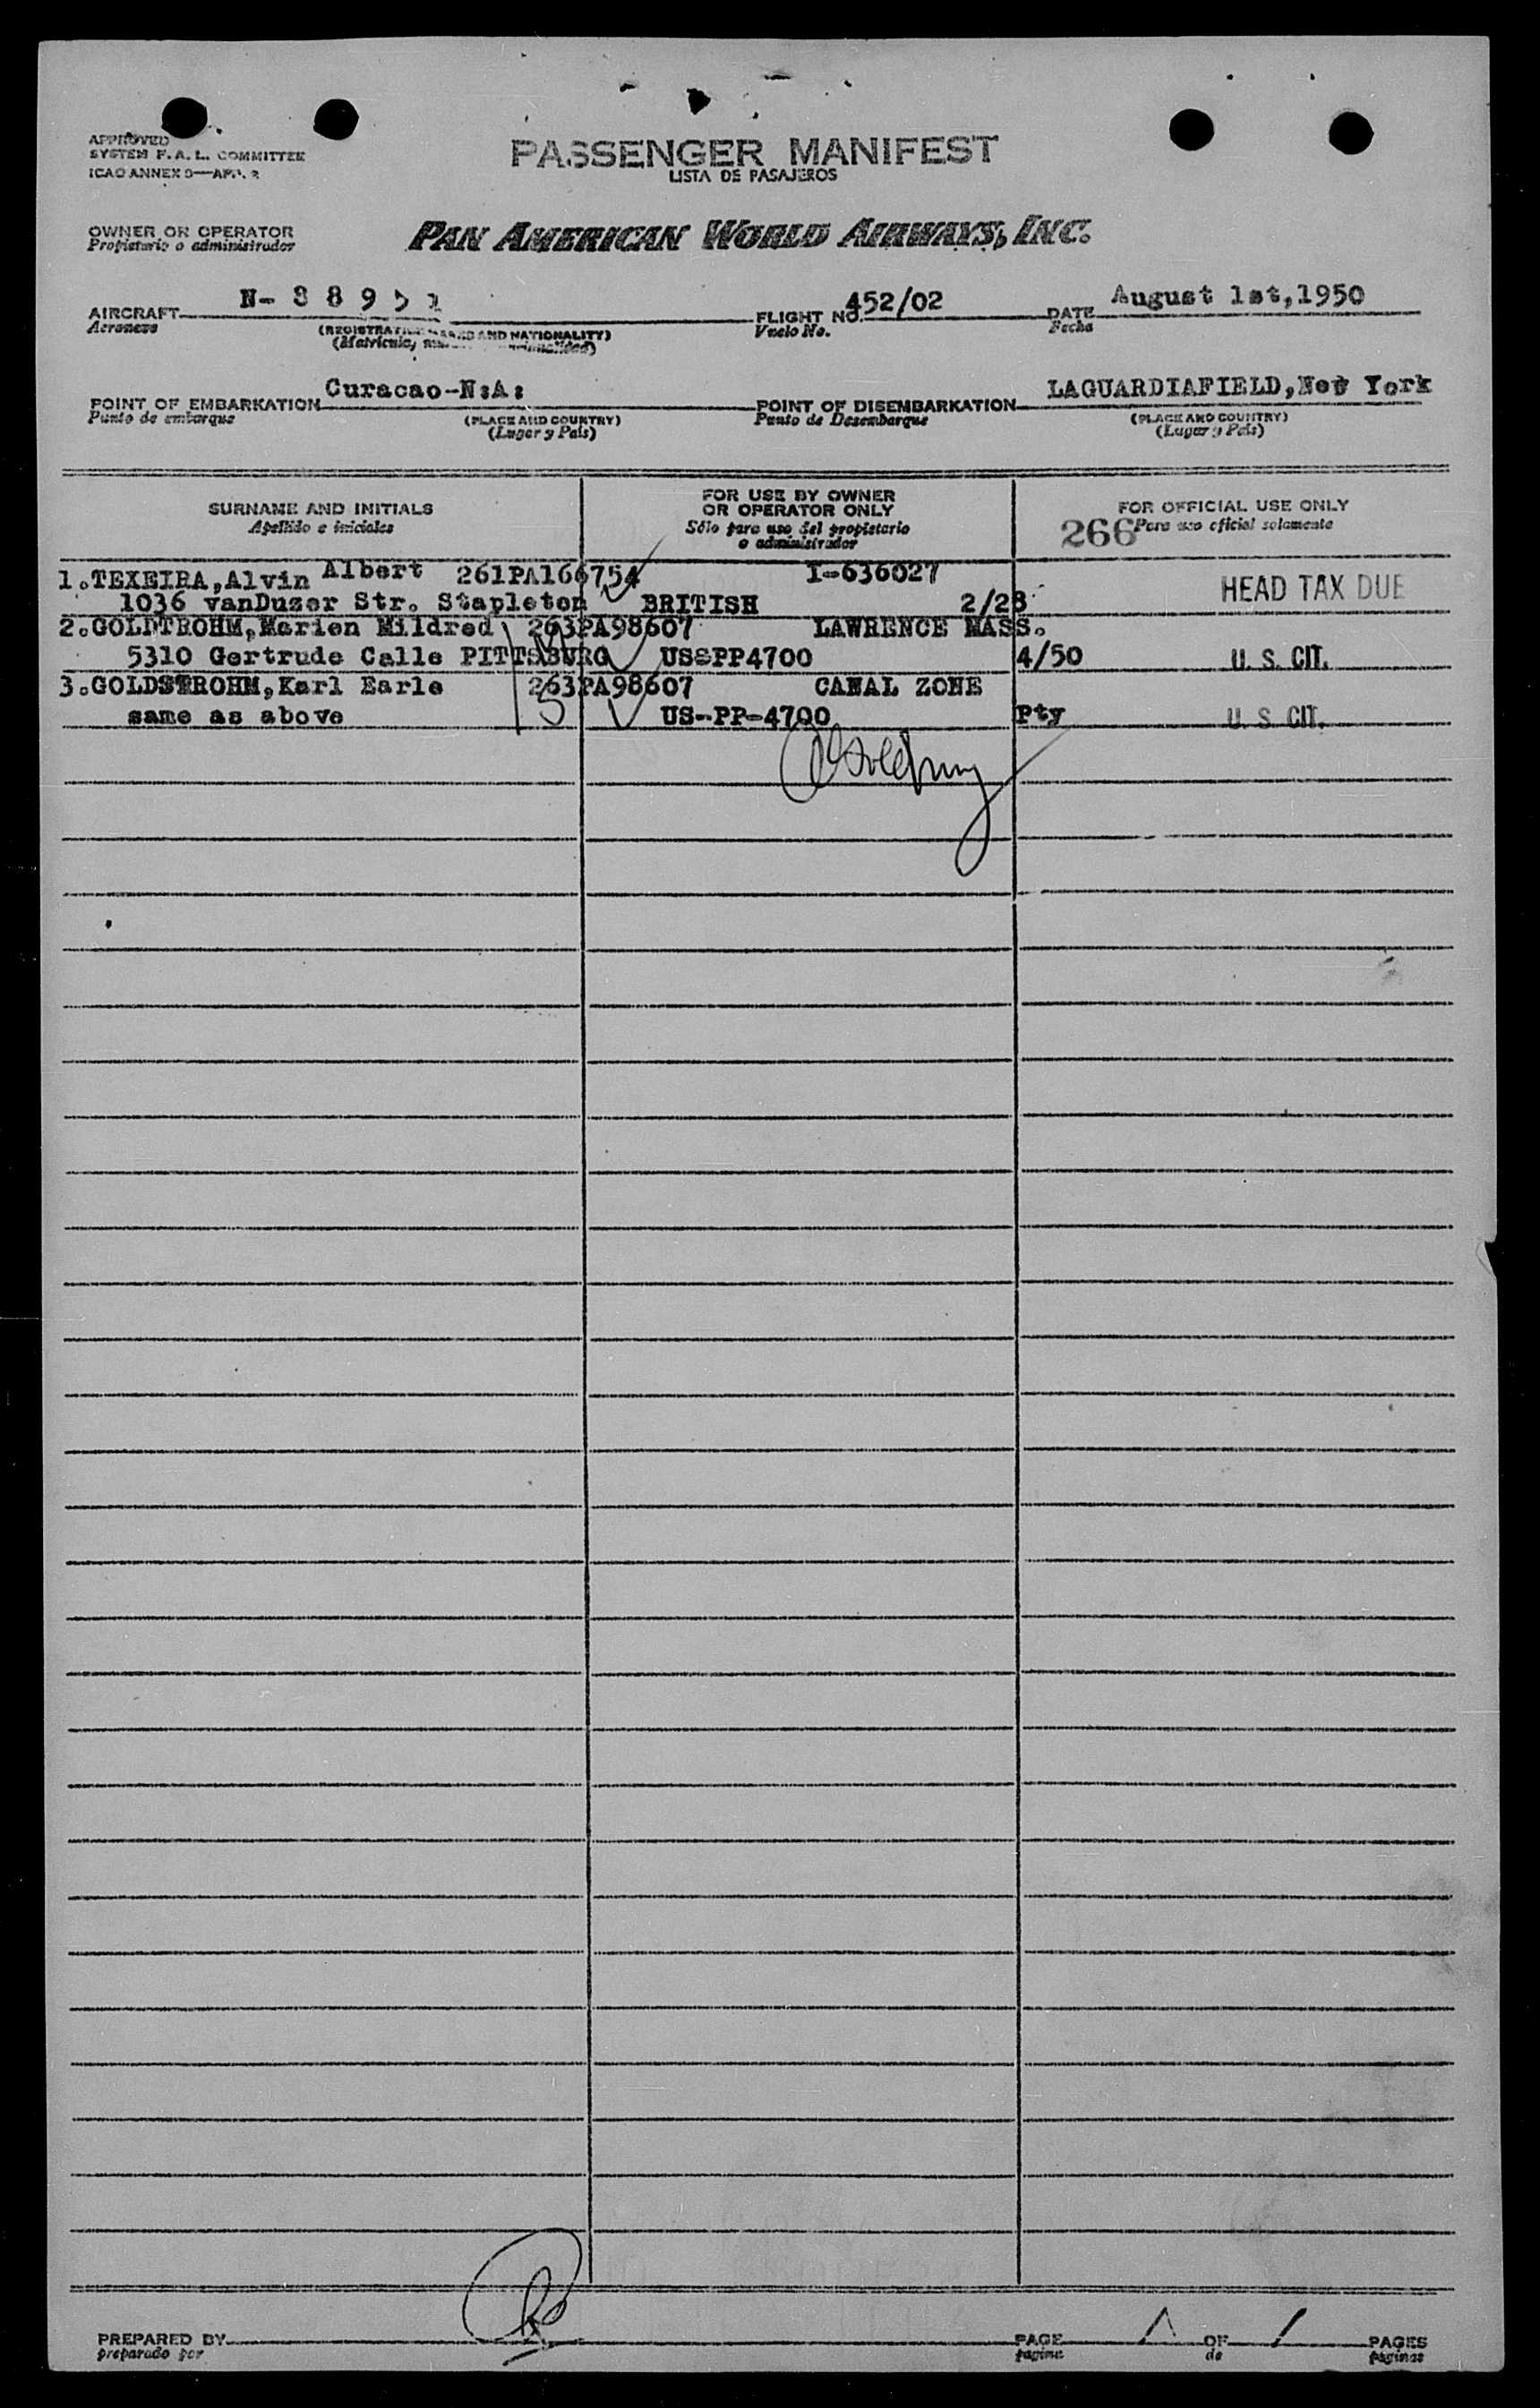 APPROVED
SYSTEM F. A. L. COMMITTEE
ICAO ANNEX 9—APP. 2
PASSENGER MANIFEST
LISTA DE PASAJEROS
OWNER OR OPERATOR
Propietario o administrador
PAN AMERICAN WORLD AIRWAYS, INC.
AIRCRAFT N- 8 8 9 5
Aeronave
(REGISTRATION MARKS AND NATIONALITY)
(Matricula,
FLIGHT NO. 452/02
Vuelo No.
DATE August 1st,1950
Fecha
POINT OF EMBARKATION Curacao-N:A:
Punto de embarque
(PLACE AND COUNTRY)
(Lugar y País)
POINT OF DISEMBARKATION LAGUARDIAFIELD,New York
Punto de Desembarque
(PLACE AND COUNTRY)
(Lugar y País)
SURNAME AND INITIALS
Apellido e iniciales
FOR USE BY OWNER
OR OPERATOR ONLY
Sólo para uso del propietario
o administrador
FOR OFFICIAL USE ONLY
266 Para uso oficial solamente
1.TEXEIRA,Alvin Albert 261PA166754 I-636027
1036 vanDuzer Str. Stapleton BRITISH 2/28 HEAD TAX DUE
2.GOLDTROHM,Marion Mildred 263PA98607 LAWRENCE MASS.
5310 Gertrude Calle PITTSBURG USSPP4700 4/50 U. S. CIT.
3.GOLDSTROHM,Karl Earle 263PA98607 CANAL ZONE
same as above US--PP-4700 Pty U. S. CIT.
PREPARED BY
preparado por
PAGE 1 OF 1 PAGES
página de páginas